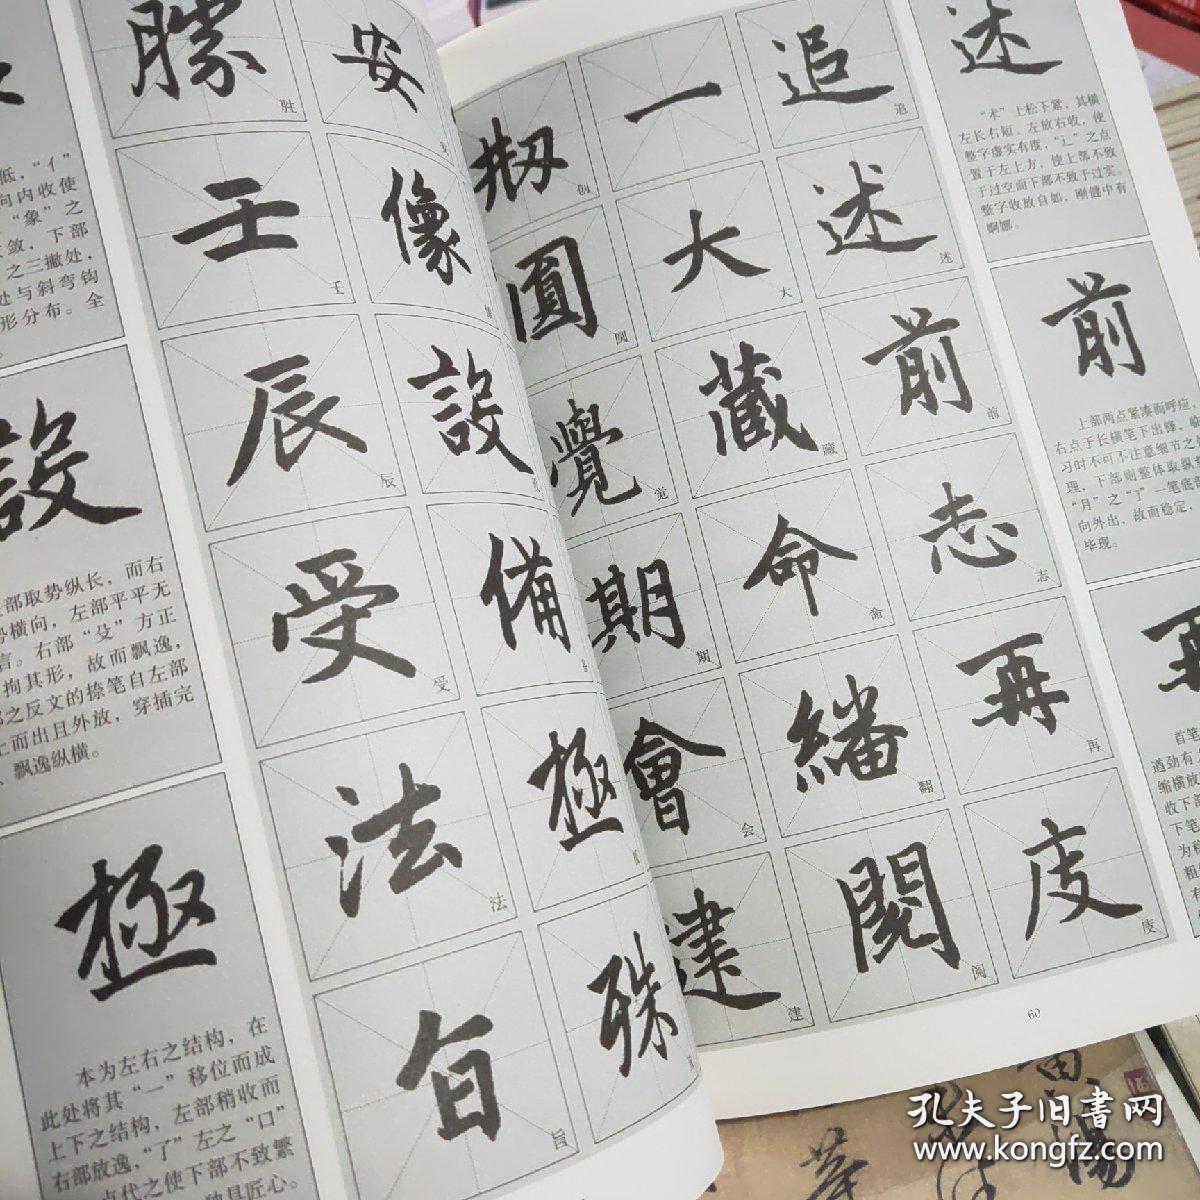 勝
胜
安
壬
壬
像
辰
辰
設
受
受
備
法
法
極
旨
旨
殊
低，“亻”
向内收使
“象”之
敛，下部
之三撇处，
处与斜弯钩
形分布。全
設
部取势纵长，而右
横向，左部平平无
言。右部“殳”方正
拘其形，故而飘逸，
之反文的捺笔自左部
上而出且外放，穿插完
、飘逸纵横。
極
本为左右之结构，在
此处将其“一”移位而成
上下之结构，左部稍收而
右部放逸，“了”左之“口”
点代之使下部不致繁
独具匠心。
追
追
述
述
前
前
志
志
再
再
度
一
大
大
藏
藏
命
命
繙
翻
閱
阅
圓
圆
覺
觉
期
期
會
会
建
建
述
“术”上松下紧，其横
左长右短、左放右收，使
整字虚实有度，“辶”之点
置于左上方，使上部不致
于过空而下部不致于过实。
整字收放自如，刚健中有
婀娜。
前
上部两点紧凑而呼应，
右点于长横笔下出锋，临
习时不可不注意细节之
理，下部则整体取纵
“月”之“丁”一笔底部
向外出，故而稳定，
毕现。
再
首笔
遒劲有
缩横放
收下部
下笔
为稳
粗
有
60
孔夫子旧书网
www.kongfz.com